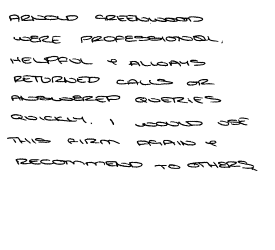 ARNOLD GREENWOOD
WERE PROFESSIONAL,
HELPFUL & ALWAYS
RETURNED CALLS OR
ANSWERED QUERIES
QUICKLY. I WOULD USE
THIS FIRM AGAIN &
RECOMMEND TO OTHERS.